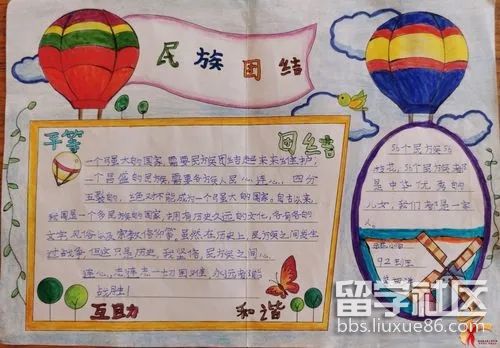 民族团结
平等
团结
一个强大的国家,需要民族团结起来来维护,
一个昌盛的民族,需要各族人民心连心,四分
五裂的,绝对不能成为一个强大的国家,自古以来,
我国是一个多民族的国家,拥有历史久远的文化,各有各的
文字、风俗以及宗教信仰等。虽然在历史上,民族之间发生
过战争,但这只是历史,我坚信,民族之间,
心连心,志连志一切困难,永远都能
战胜!
互助
和谐
56个民族56
枝花,56个民族都
是中华优秀的
儿女,我们都是一家
人。
留学社区
bbs.liuxue86.com